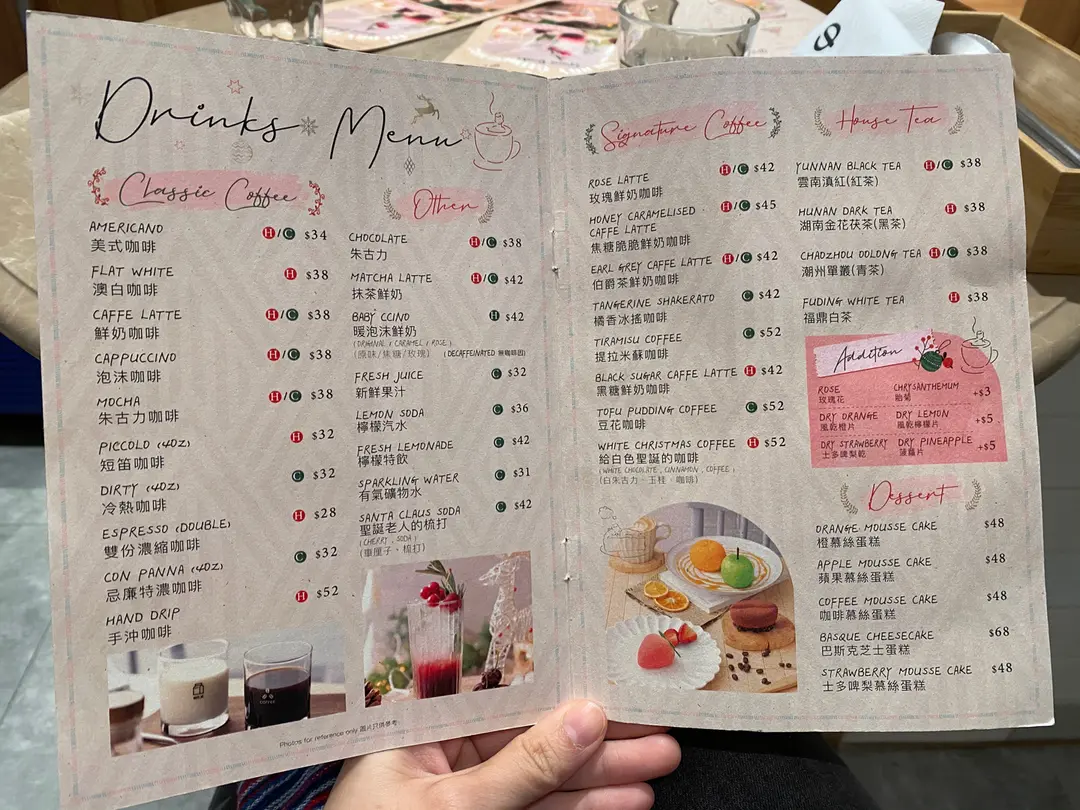 Drinks Menu
Classic Coffee
AMERICANO H/C $34
美式咖啡
FLAT WHITE H $38
澳白咖啡
CAFFE LATTE H/C $38
鮮奶咖啡
CAPPUCCINO H/C $38
泡沫咖啡
MOCHA H/C $38
朱古力咖啡
PICCOLO (4OZ) H $32
短笛咖啡
DIRTY (4OZ) C $32
冷熱咖啡
ESPRESSO (DOUBLE) H $28
雙份濃縮咖啡
CON PANNA (4OZ) C $32
忌廉特濃咖啡
HAND DRIP H $52
手沖咖啡
Other
CHOCOLATE H/C $38
朱古力
MATCHA LATTE H/C $42
抹茶鮮奶
BABY CCINO H $42
暖泡沫鮮奶
(ORIGINAL / CARAMEL / ROSE)
(原味/焦糖/玫瑰) (DECAFFEINATED 無咖啡因)
FRESH JUICE C $32
新鮮果汁
LEMON SODA C $36
檸檬汽水
FRESH LEMONADE C $42
檸檬特飲
SPARKLING WATER C $31
有氣礦物水
SANTA CLAUS SODA C $42
聖誕老人的梳打
(CHERRY , SODA)
(車厘子、梳打)
Photos for reference only 圖片只供參考
Signature Coffee
ROSE LATTE H/C $42
玫瑰鮮奶咖啡
HONEY CARAMELISED H/C $45
CAFFE LATTE
焦糖脆脆鮮奶咖啡
EARL GREY CAFFE LATTE H/C $42
伯爵茶鮮奶咖啡
TANGERINE SHAKERATO C $42
橘香冰搖咖啡
TIRAMISU COFFEE C $52
提拉米蘇咖啡
BLACK SUGAR CAFFE LATTE H $42
黑糖鮮奶咖啡
TOFU PUDDING COFFEE C $52
豆花咖啡
WHITE CHRISTMAS COFFEE H $52
給白色聖誕的咖啡
(WHITE CHOCOLATE , CINNAMON , COFFEE)
(白朱古力、玉桂、咖啡)
House Tea
YUNNAN BLACK TEA H/C $38
雲南滇紅(紅茶)
HUNAN DARK TEA H $38
湖南金花茯茶(黑茶)
CHAOZHOU OOLONG TEA H/C $38
潮州單叢(青茶)
FUDING WHITE TEA H $38
福鼎白茶
Addition
ROSE CHRYSANTHEMUM +$3
玫瑰花 胎菊
DRY ORANGE DRY LEMON +$5
風乾橙片 風乾檸檬片
DRY STRAWBERRY DRY PINEAPPLE +$5
士多啤梨乾 菠蘿片
Dessert
ORANGE MOUSSE CAKE $48
橙慕絲蛋糕
APPLE MOUSSE CAKE $48
蘋果慕絲蛋糕
COFFEE MOUSSE CAKE $48
咖啡慕絲蛋糕
BASQUE CHEESECAKE $68
巴斯克芝士蛋糕
STRAWBERRY MOUSSE CAKE $48
士多啤梨慕絲蛋糕